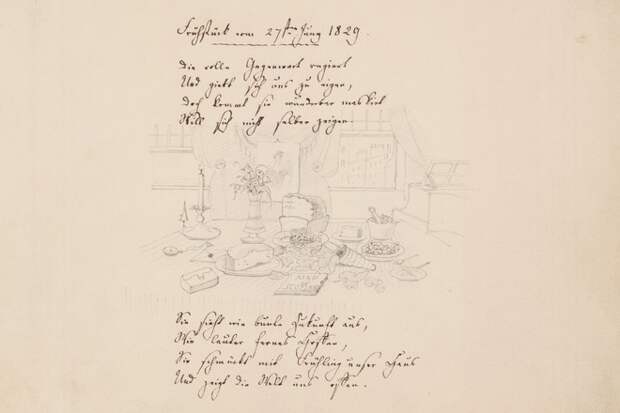 Frühstück vom 27ten Juny 1829.
Die volle Gegenwart regiert
Und giebt sich uns zu eigen,
Doch kommt sie wunderbar maskirt
Will sich nicht selber zeigen.
Sie sieht wie bunte Zukunft aus,
Wie lauter fernes Hoffen,
Sie schmückt mit Frühling unser Haus
Und zeigt die Welt uns offen.